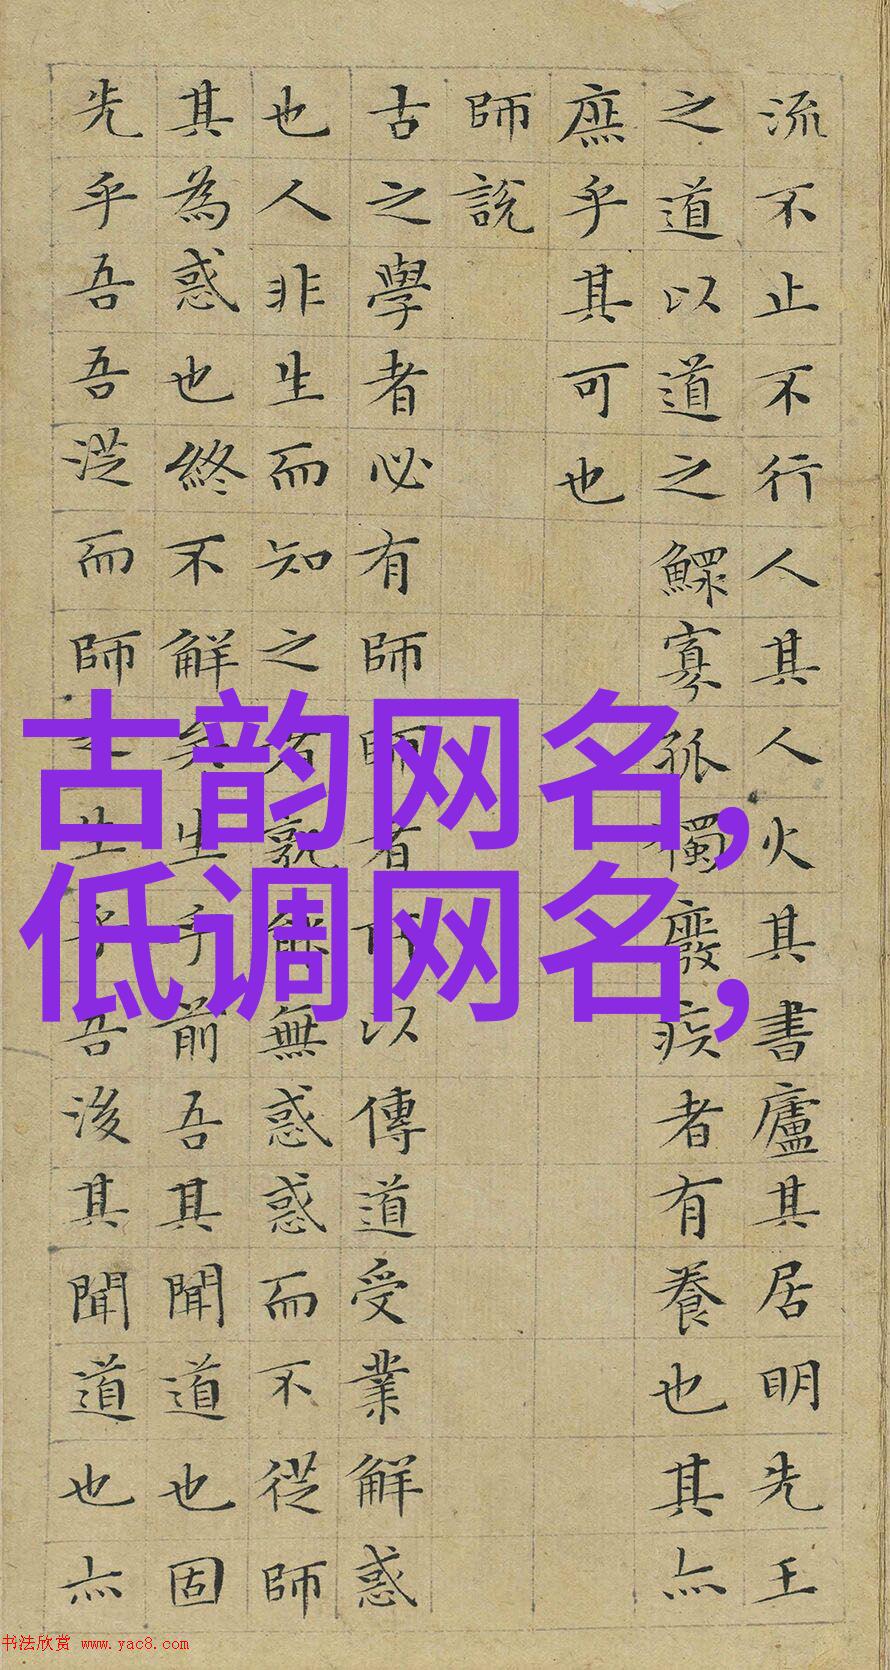 流不止不行人其人火其書廬其居明先王
之道以道之鰥寡孤獨廢疾者有養也其亦
庶乎其可也
師說
古之學者必有師師者所以傳道受業解惑
也人非生而知之者孰能無惑惑而不從師
其為惑也終不解矣生乎前吾其聞道也固
先乎吾吾從而師之生乎吾後其聞道也亦
古韵网名,
低调网名,
书法欣赏 www.yac8.com